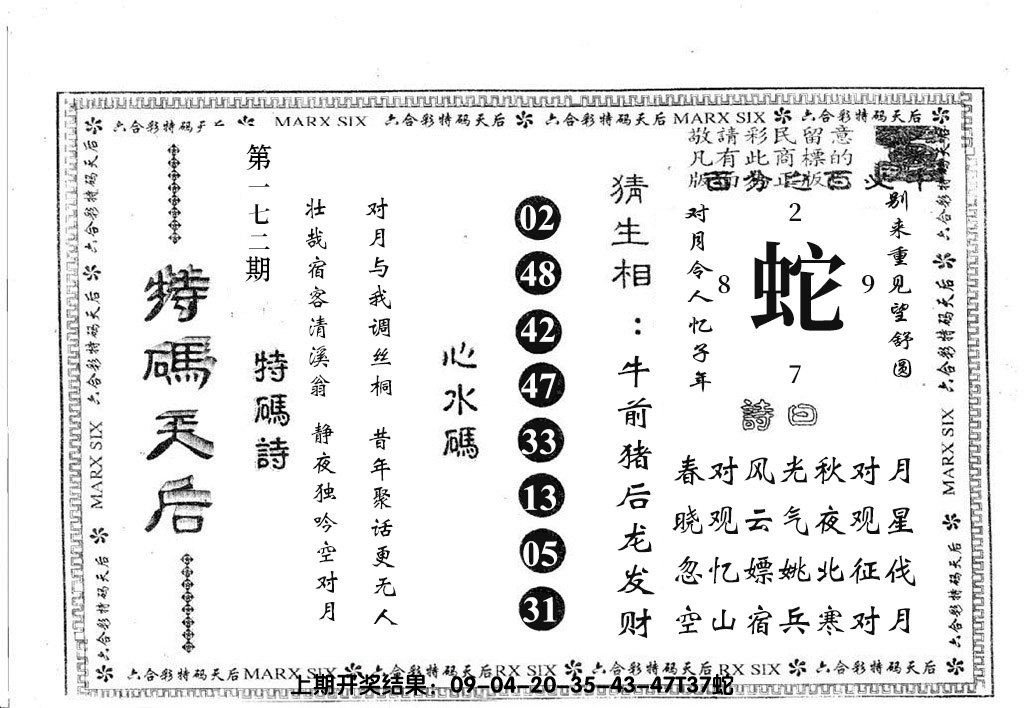 六合彩特码天后 MARX SIX 六合彩特码天后 六合彩特码天后 MARX SIX 六合彩特码天后
敬請彩民留意
凡有此商標的
版面为正版
别来重见望舒圆
对月令人忆子年
2
8
蛇
9
7
詩曰
春对风光秋对月
晓观云气夜观星
忽忆嫖姚北征伐
空山宿兵寒对月
猜生相：牛前猪后龙发财
02
48
42
47
33
13
05
31
心水碼
对月与我调丝桐 昔年聚话更无人
壮哉宿客清溪翁 静夜独吟空对月
特碼詩
第一七二期
特碼天后
六合彩特码天后 六合彩特码天后 MARX SIX 六合彩特码天后
六合彩特码天后 六合彩特码天后 MARX SIX 六合彩特码天后
六合彩特码天后 MARX SIX 六合彩特码天后 RX SIX 六合彩特码天后 RX SIX 六合彩特码天后
上期开奖结果：09-04-20-35-43-47T37蛇